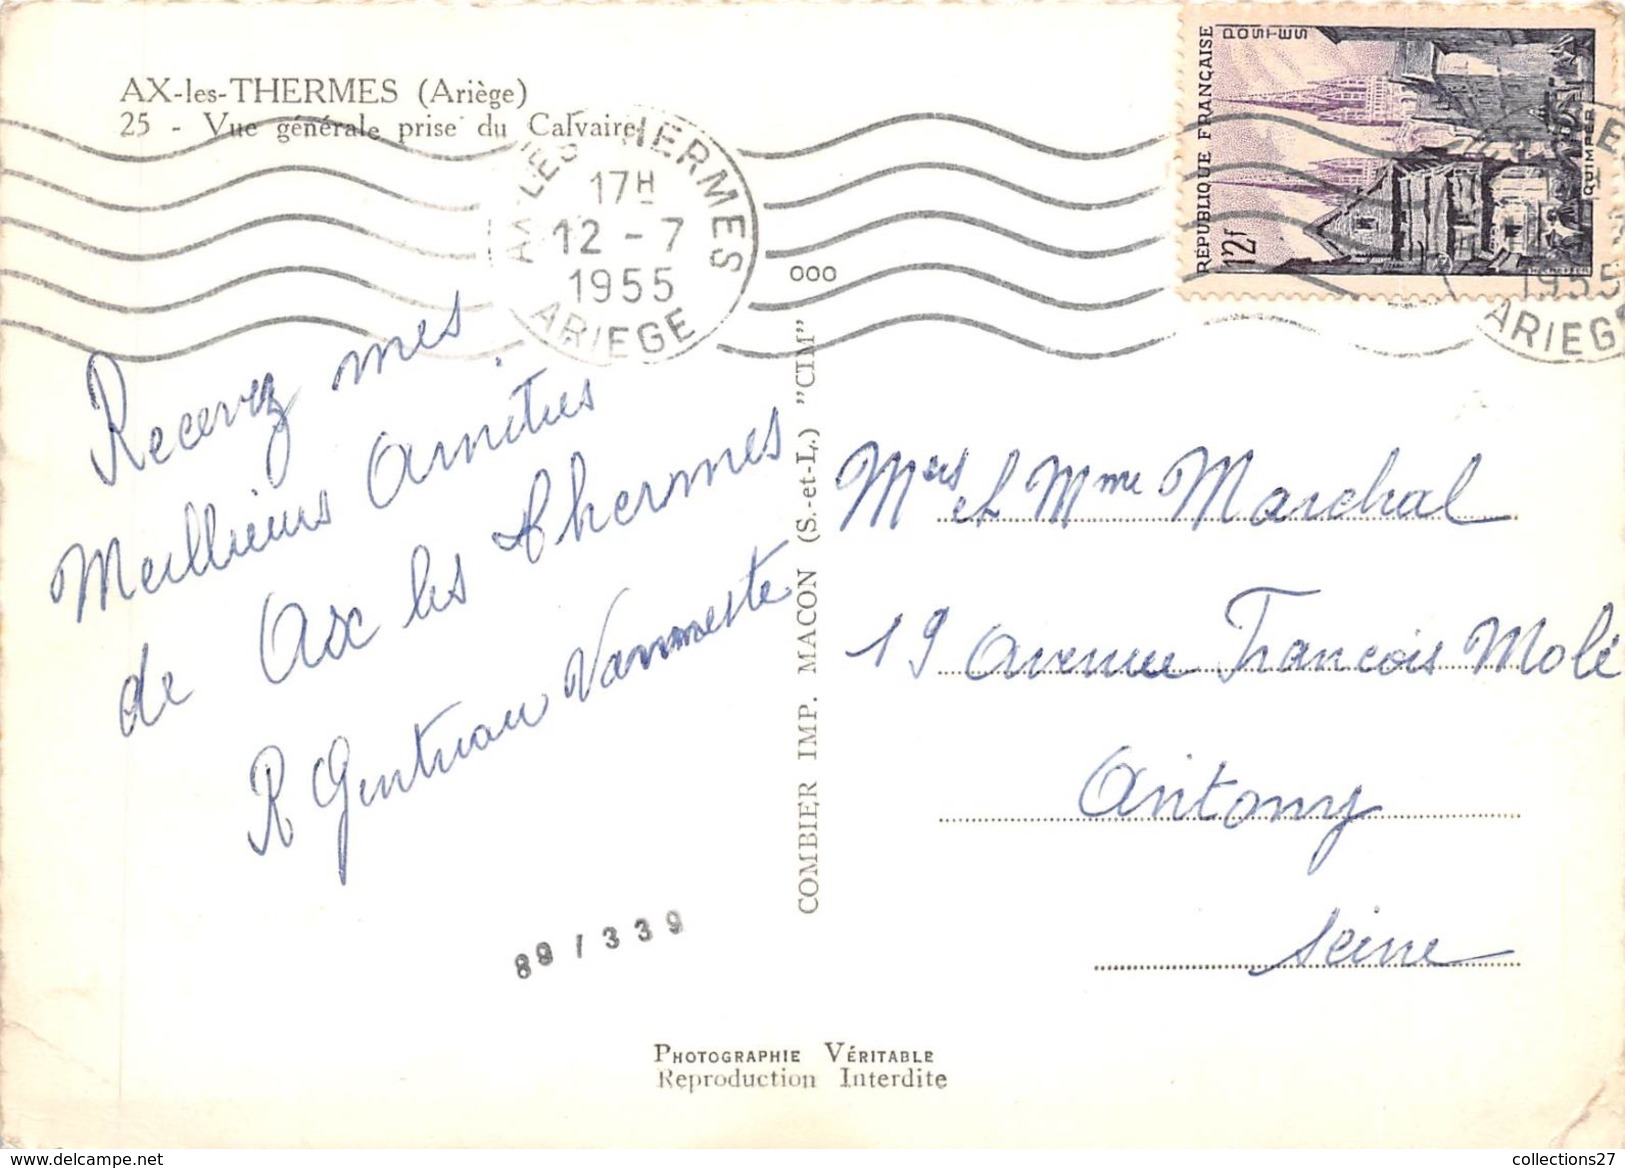 AX-les-THERMES (Ariège)
25 - Vue générale prise du Calvaire
AX-LES-THERMES
17H
12-7
1955
ARIEGE
000
RÉPUBLIQUE FRANÇAISE
POSTES
12f
QUIMPER
1955
ARIEGE
Recevez mes
Meillieurs Amitiés
de Ax les thermes
R Gentriau Vanmeste
Mers et Mme Marchal
19 Avenue François Molé
Antony
Seine
COMBIER IMP. MACON (S.-et-L.) "CIM"
89/339
PHOTOGRAPHIE VÉRITABLE
Reproduction Interdite
www.delcampe.net
collections27